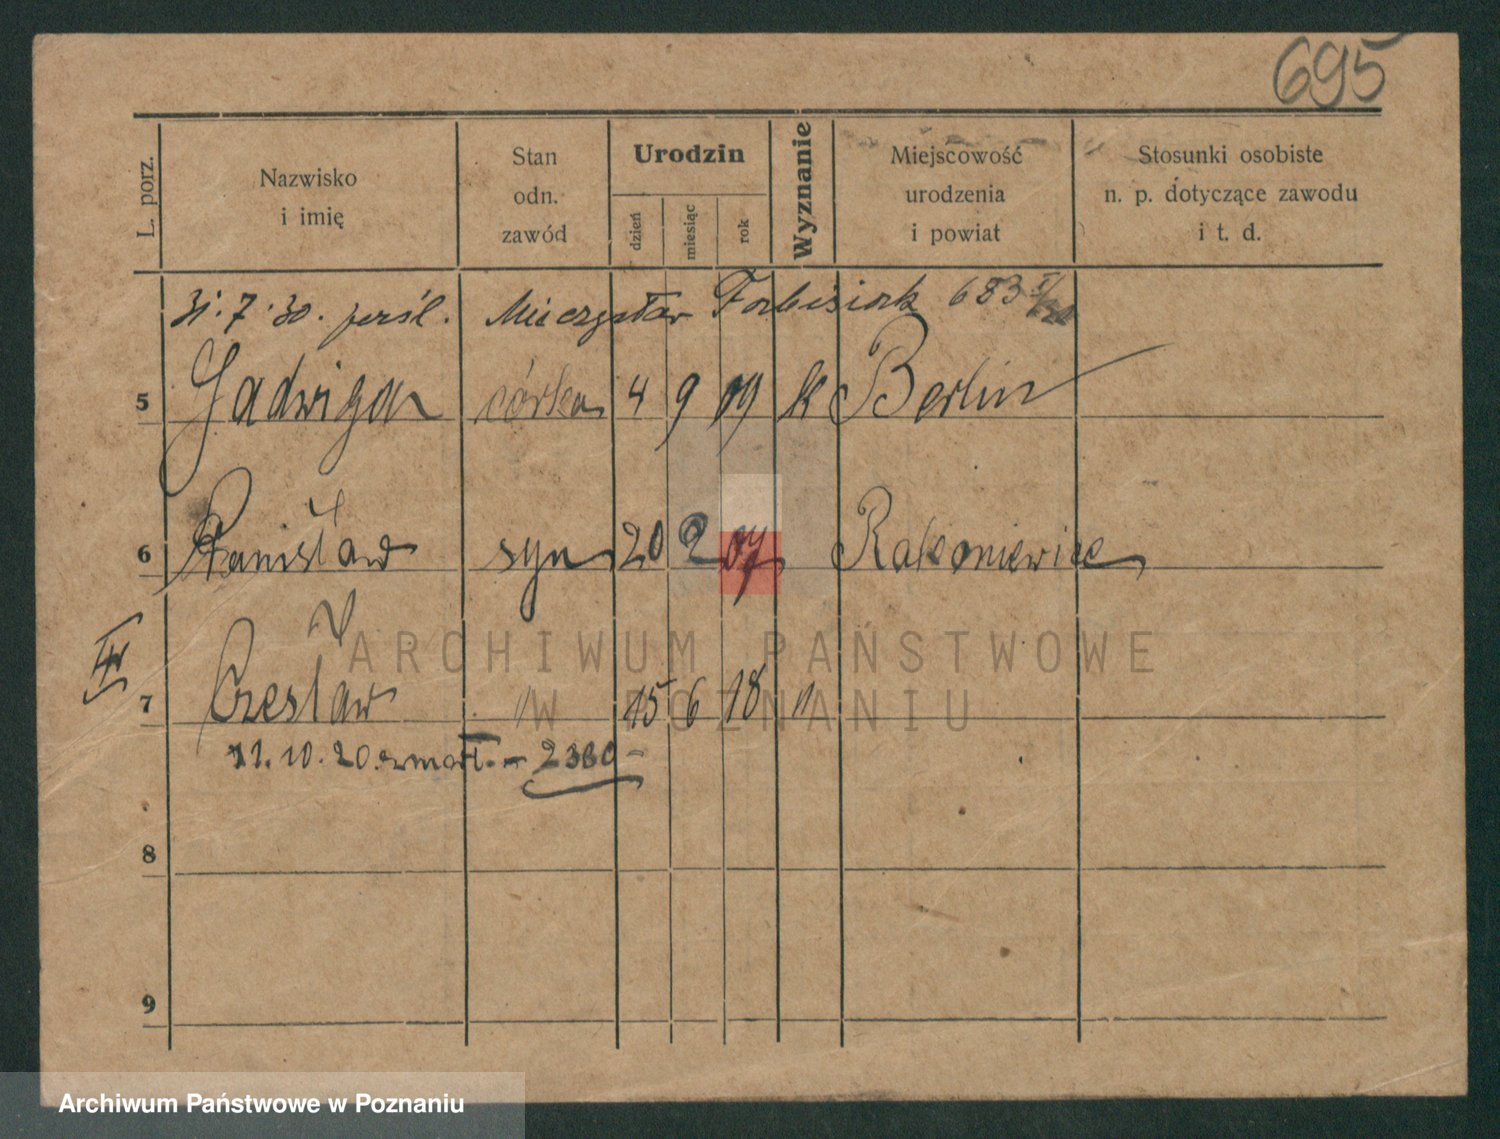 695
L. porz.
Nazwisko
i imię
Stan
odn.
zawód
Urodzin
dzień
miesiąc
rok
Wyznanie
Miejscowość
urodzenia
i powiat
Stosunki osobiste
n. p. dotyczące zawodu
i t. d.
31.7.30. Mieczysław 683
5 Jadwiga córka 4 9 09 k Berlin
6 Stanisław syn 20 2 07 Rakoniewice
IV
7 Czesław " 15 6 18 "
11.10.20. zmarł. - 2360 -
8
9
ARCHIWUM PAŃSTWOWE
W POZNANIU
Archiwum Państwowe w Poznaniu